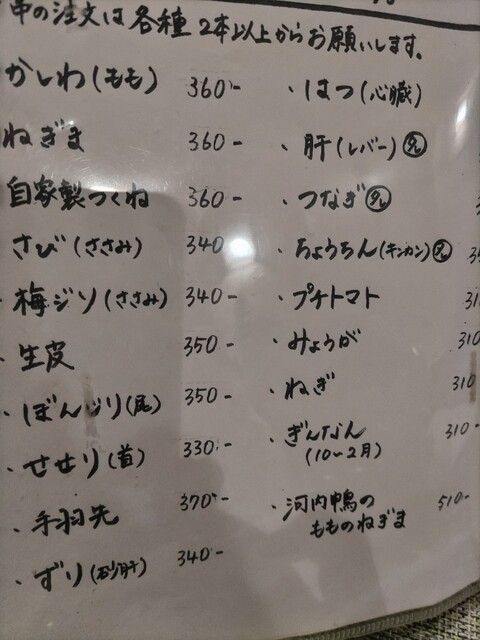 串の注文は各種2本以上からお願いします。
かしわ(もも) 360-
ねぎま 360-
自家製つくね 360-
さび(ささみ) 340
・梅ジソ(ささみ) 340-
・生皮 350-
・ぼんじり(尾) 350-
・せせり(首) 330-
・手羽先 370-
・ずり(砂肝) 340-
・はつ(心臓)
・肝(レバー) タレ
・つなぎ タレ
・ちょうちん(キンカン) タレ
・プチトマト 310
・みょうが 310
・ねぎ 310
・ぎんなん 310-
(10~2月)
・河内鴨の 510-
もものねぎま